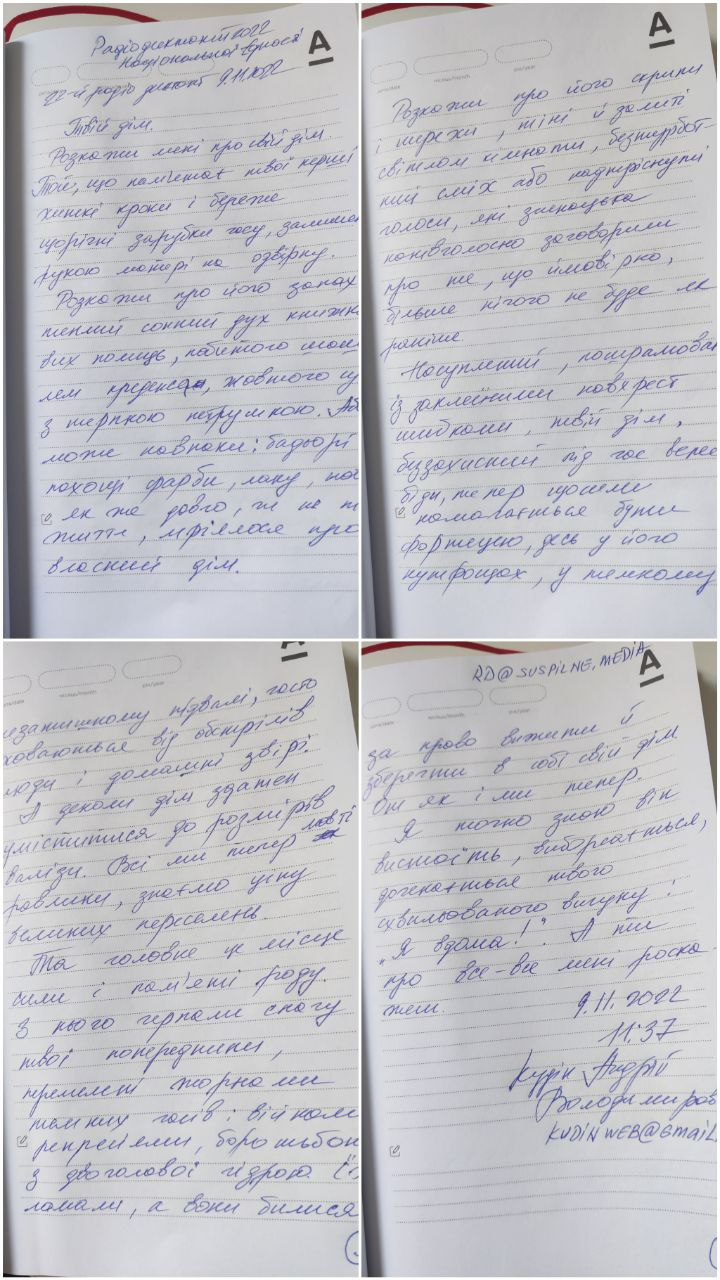 Радіодиктант 2022
Національної єдності
А
22-й радіо диктант 9.11.2022
Твій дім.
Розкажи мені про свій дім.
Той, що пам'ятає твої перші
хиткі кроки і береже
щорічні зарубки часу, залишені
рукою матері на одвірку.
Розкажи про його запах
теплий сонний дух книжко
вих полиць, побитого шаше
лем креденса, жовтого су
з терпкою петрушкою. Аб
може навпаки: бадьорі
пахощі фарби, лаку,
як же довго, чи не п
життя, мріялося про
власний дім.
А
Розкажи про його скрипи
і шерехи, тіні й залиті
світлом кімнати, безтурбот-
ний сміх або надтріснуті
голоси, які зненацька
напівголосно заговорили
про те, що ймовірно,
більше нічого не буде як
раніше.
Насуплений, пошрамован
із заклеїними навхрест
шибками, твій дім,
беззахисний під час вели
біди, тепер щосили
намагається бути
фортецею, десь у його
нутрощах, у темному
А
незатишному підвалі, часто
ховаються від обстрілів
люди і домашні звірі.
А деколи дім здатен
уміститися до розмірів
валізи. Всі ми тепер
равлики, знаємо ціну
великих переселень.
Та головне це місце
сили і пам'яті роду.
З нього черпали снагу
твої попередники,
перемелені жорнами
темних часів: війнами
репресіями, боротьбою
з двоголової гідрою. Їх
ломали, а вони билися
RD@SUSPILNE.MEDIA
А
за право вижити й
зберегти в собі свій дім
От як і ми тепер.
Я точно знаю він
вистоїть, вибереться,
дочекається твого
схвильованого вигуку:
„Я вдома!". А ти
про все-все мені роска-
жеш.
9.11.2022
11:37
Кудін Андрій
Володимиров
KUDINWEB@GMAIL